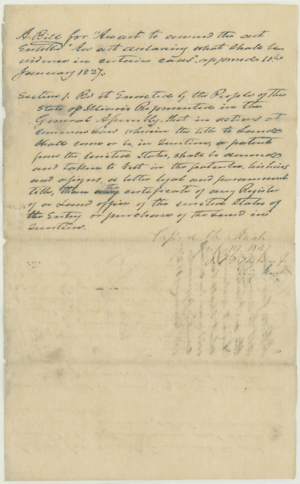 A Bill for "An act to amend the act
Entitled "An act declaring what shall be
evidence in certain cases" approved 10th
January 1827.
Section 1. Be it Enacted by the People of the
State of Illinois Represented in the
General Assembly, that in actions at
wherein the title to Lands
shall come or be, in question, a patent
from the United States, shall be deemed
and taken to vest in the patentee, his heirs
and assigns, a better legal and paramount
title, than any certificate of any Register
of a Land office of the United States of
the Entry or purchase of the Land in
question.